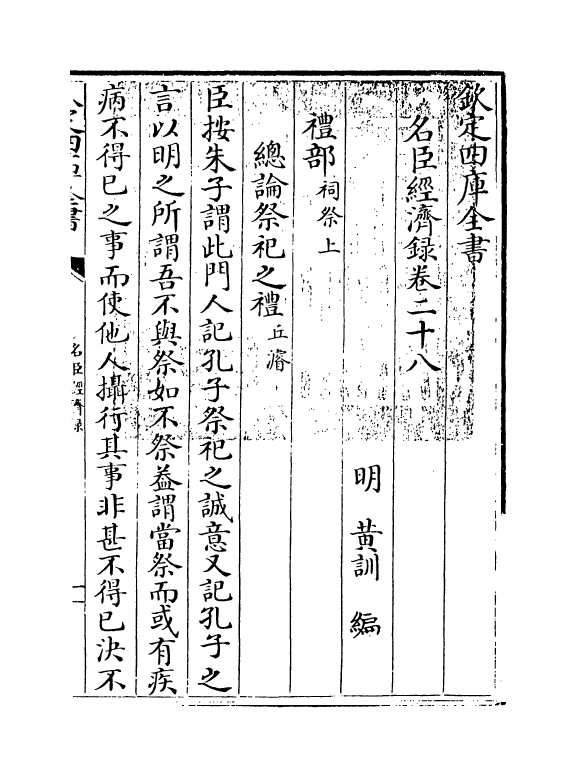 欽定四庫全書
名臣經濟録卷二十八
明 黃訓 編
禮部祠祭上
總論祭祀之禮丘濬
臣按朱子謂此門人記孔子祭祀之誠意又記孔子之
言以明之所謂吾不與祭如不祭葢謂當祭而或有疾
病不得已之事而使他人攝行其事非甚不得已決不
欽定四庫全書
名臣經濟録
一